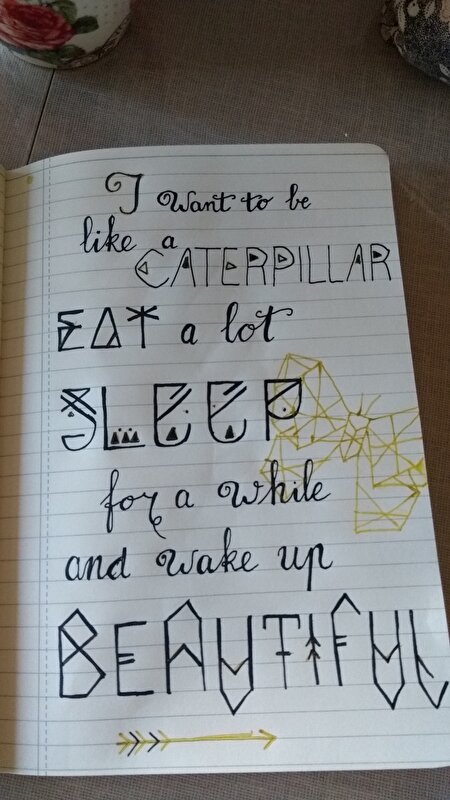 I want to be
like a
CATERPILLAR
EAT a lot
SLEEP
for a while
and wake up
BEAUTIFUL